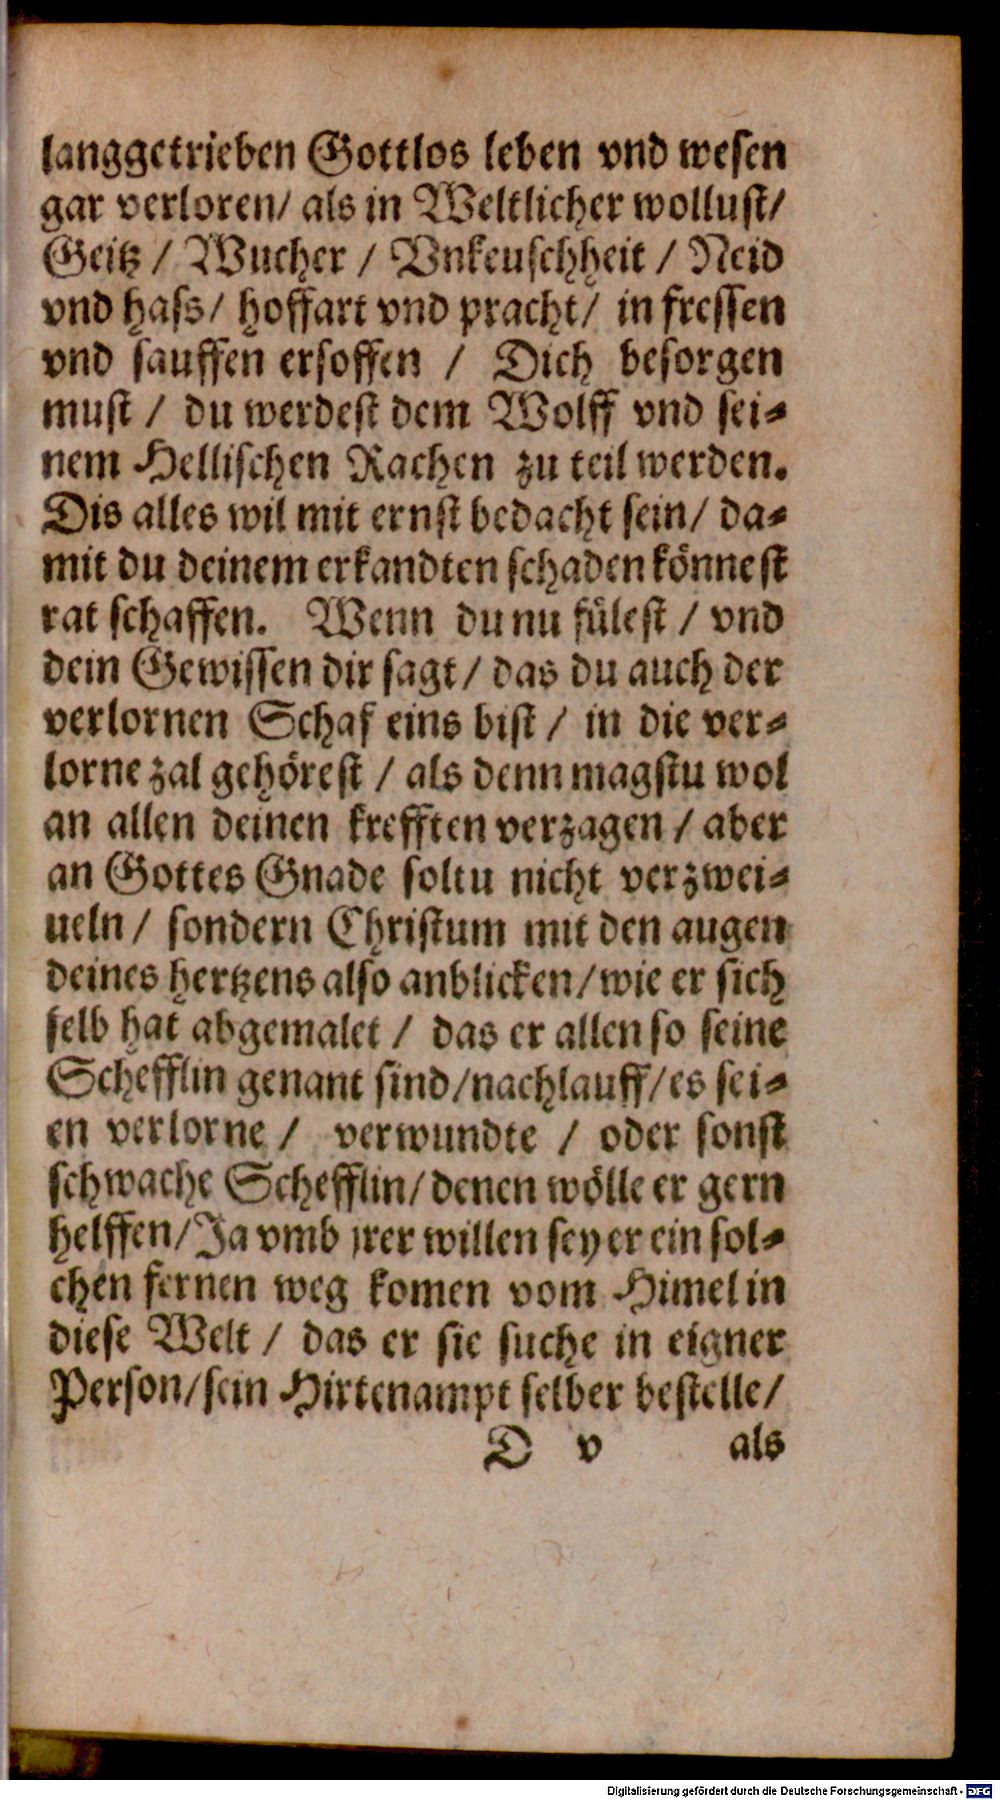 langgetrieben Gottlos leben vnd wesen
gar verloren/ als in Weltlicher wollust/
Geitz / Wucher / Vnkeuschheit / Neid
vnd hass/ hoffart vnd pracht/ in fressen
vnd sauffen ersoffen / Dich besorgen
must / du werdest dem Wolff vnd sei-
nem Hellischen Rachen zu teil werden.
Dis alles wil mit ernst bedacht sein/ da-
mit du deinem erkandten schaden könnest
rat schaffen. Wenn du nu fülest / vnd
dein Gewissen dir sagt/ das du auch der
verlornen Schaf eins bist / in die ver-
lorne zal gehörest / als denn magstu wol
an allen deinen krefften verzagen / aber
an Gottes Gnade soltu nicht verzwei-
ueln / sondern Christum mit den augen
deines hertzens also anblicken/wie er sich
selb hat abgemalet / das er allen so seine
Schefflin genant sind/nachlauff/es sei-
en verlorne / verwundte / oder sonst
schwache Schefflin/denen wölle er gern
helffen/Ja vmb jrer willen sey er ein sol-
chen fernen weg komen vom Himel in
diese Welt / das er sie suche in eigner
Person/sein Hirtenampt selber bestelle/
D v als
Digitalisierung gefördert durch die Deutsche Forschungsgemeinschaft - DFG